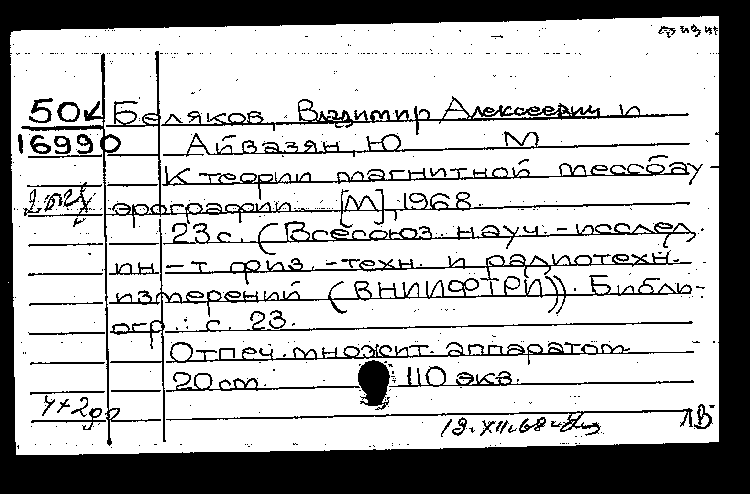 50к Беляков, Владимир Алексеевич и
16990 Айвазян, Ю М
К теории магнитной мессбау-
эрографии [М], 1968.
23 с. (Всесоюз. науч.-исслед.
ин-т физ.-техн. и радиотехн.
измерений (ВНИИФТРИ)). Библи-
огр.: с. 23.
Отпеч. множит. аппаратом
20 cm 110 экз.
19.XII.68 ЛВ